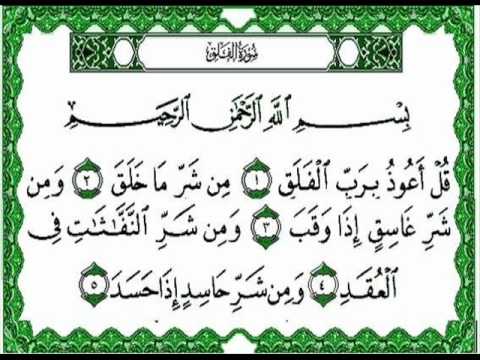 سُورَةُ الفَلَقِ
بِسْمِ اللَّهِ الرَّحْمَٰنِ الرَّحِيمِ
قُلْ أَعُوذُ بِرَبِّ الْفَلَقِ ١ مِن شَرِّ مَا خَلَقَ ٢ وَمِن
شَرِّ غَاسِقٍ إِذَا وَقَبَ ٣ وَمِن شَرِّ النَّفَّاثَاتِ فِي
الْعُقَدِ ٤ وَمِن شَرِّ حَاسِدٍ إِذَا حَسَدَ ٥